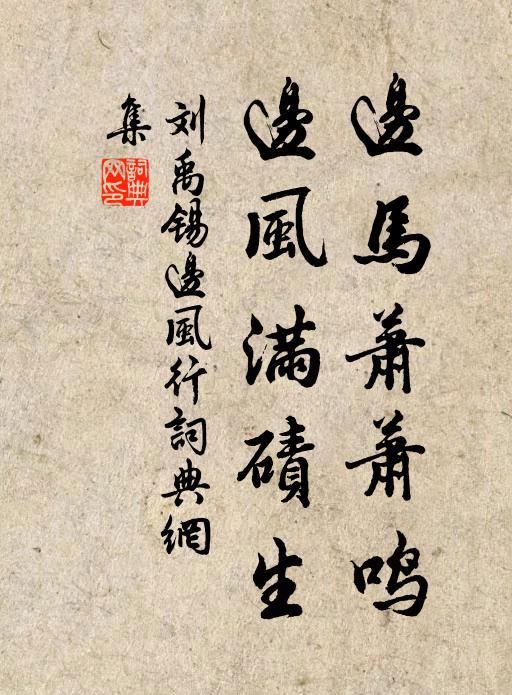 邊馬蕭蕭鳴
邊風滿磧生
刘禹锡邊風行詞典網
集
詞典
网印